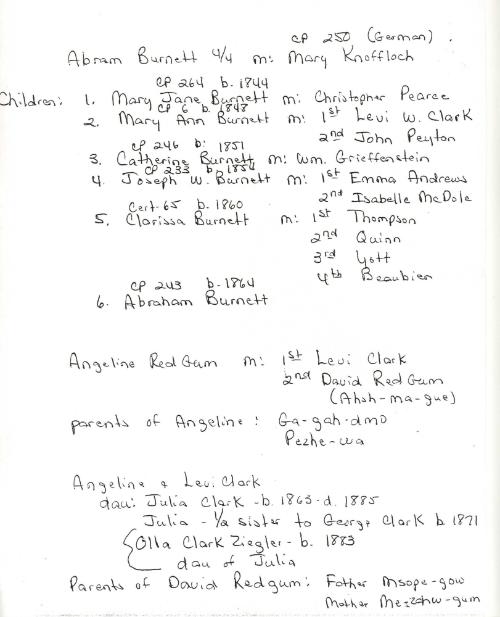 CP 250 (German).
Abram Burnett 4/4 m: Mary Knoffloch
CP 264 b. 1844
Children: 1. Mary Jane Burnett m: Christopher Pearce
CP 6 b. 1848
2. Mary Ann Burnett m: 1st Levi W. Clark
2nd John Peyton
CP 246 b: 1851
3. Catherine Burnett m: Wm. Grieffenstein
CP 233 b. 1854
4. Joseph W. Burnett m: 1st Emma Andrews
2nd Isabelle McDole
Cert. 65 b. 1860
5. Clarissa Burnett m: 1st Thompson
2nd Quinn
3rd Yott
4th Beaubien
CP 243 b-1864
6. Abraham Burnett
Angeline Red Gum m: 1st Levi Clark
2nd David Red Gum
(Ahsh-ma-gue)
parents of Angeline: Ga-gah-dmo
Pezhe-wa
Angeline & Levi Clark
dau: Julia Clark -b. 1863-d. 1885
Julia - 1/2 sister to George Clark b 1871
Olla Clark Ziegler - b. 1883
dau of Julia
Parents of David Redgum: Father Msope-gow
Mother -gum